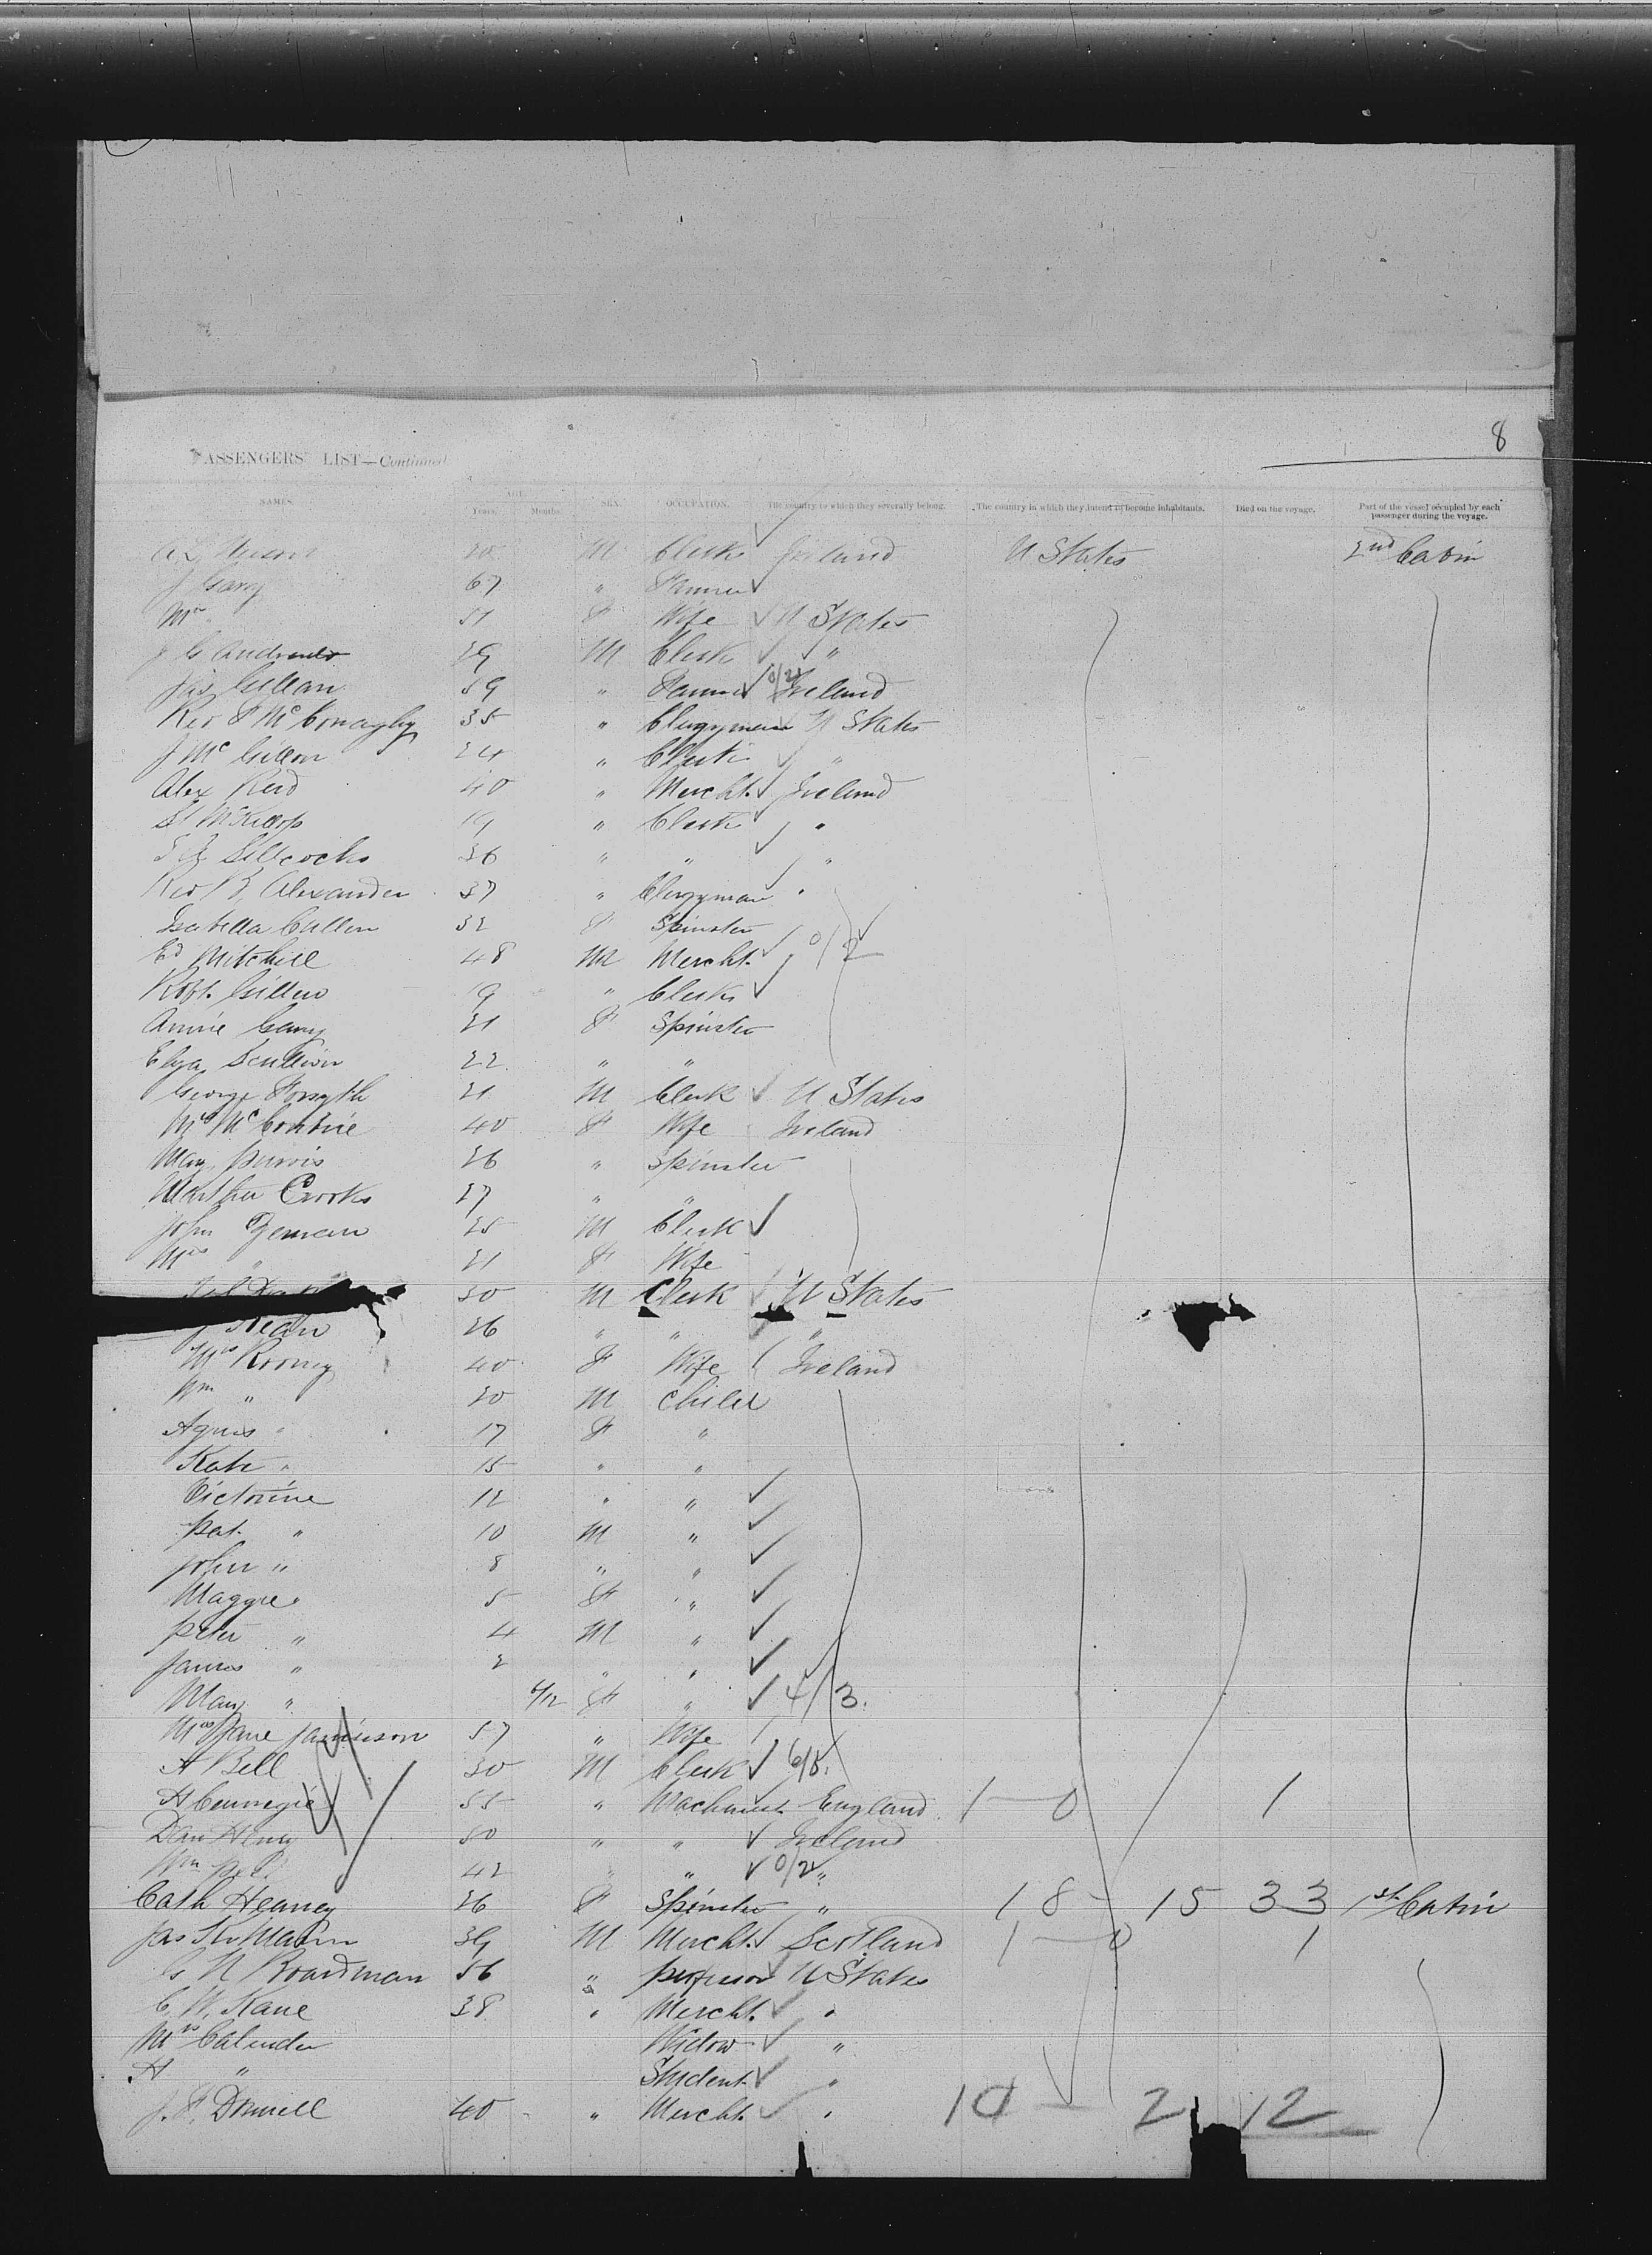 8
PASSENGERS' LIST—Continued
NAMES. AGE. Years. Months. SEX. OCCUPATION. The country to which they severally belong. The country in which they intend to become inhabitants. Died on the voyage. Part of the vessel occupied by each passenger during the voyage.
20 M Clerk Ireland U States 2nd Cabin
J Gary 67 " Farmer
Mrs 51 F Wife U States
J G Andrews 29 M Clerk "
Jas Gillan 59 " Farmer 0/2 Ireland
Rev P McConaghy 35 " Clergyman U States
J McGillon 24 " Clerk "
Alex Reid 40 " Mercht. Ireland
19 " Clerk "
Sillcocks 36 " " "
Rev Alexander 37 " Clergyman "
Isabella Cullen 32 F Spinster
Ed Mitchell 48 M Mercht. 0/2
Robt. Gillen 19 " Clerk
Annie Gary 21 F Spinster
Eliza Scullion 22 " "
George Forsyth 21 M Clerk U States
Mrs 40 F Wife Ireland
Mary Purvis 26 " Spinster
Martha Crooks 27 " "
John 25 M Clerk
Mrs " 21 F Wife
30 M Clerk U States
J 26 " " "
Mrs Rooney 40 F Wife Ireland
Wm " 20 M Child
Agnes " 17 F "
Kate " 15 " "
Victorine 12 " "
Pat. " 10 M "
John " 8 " "
Maggie " 5 F "
Peter " 4 M "
James " 2 " "
Mary " 6/12 F " 4/3.
Mrs Jane Jamieson 57 " Wife
A Bell 30 M Clerk 6/5.
A Carnegie 55 " Machinist England 1 — 0 1
Dan Henry 50 " " Ireland
Wm 42 " " 0/2 "
Cath Heaney 26 F Spinster " 18 - 15 33 1st Cabin
Jas 39 M Mercht. Scotland 1 — 0 1
G N Boardman 56 " Professor U States
C. W. Kane 38 " Mercht. "
Mrs Calender Widow "
A " Student "
J. F. 40 " Mercht. " 10 — 2 12